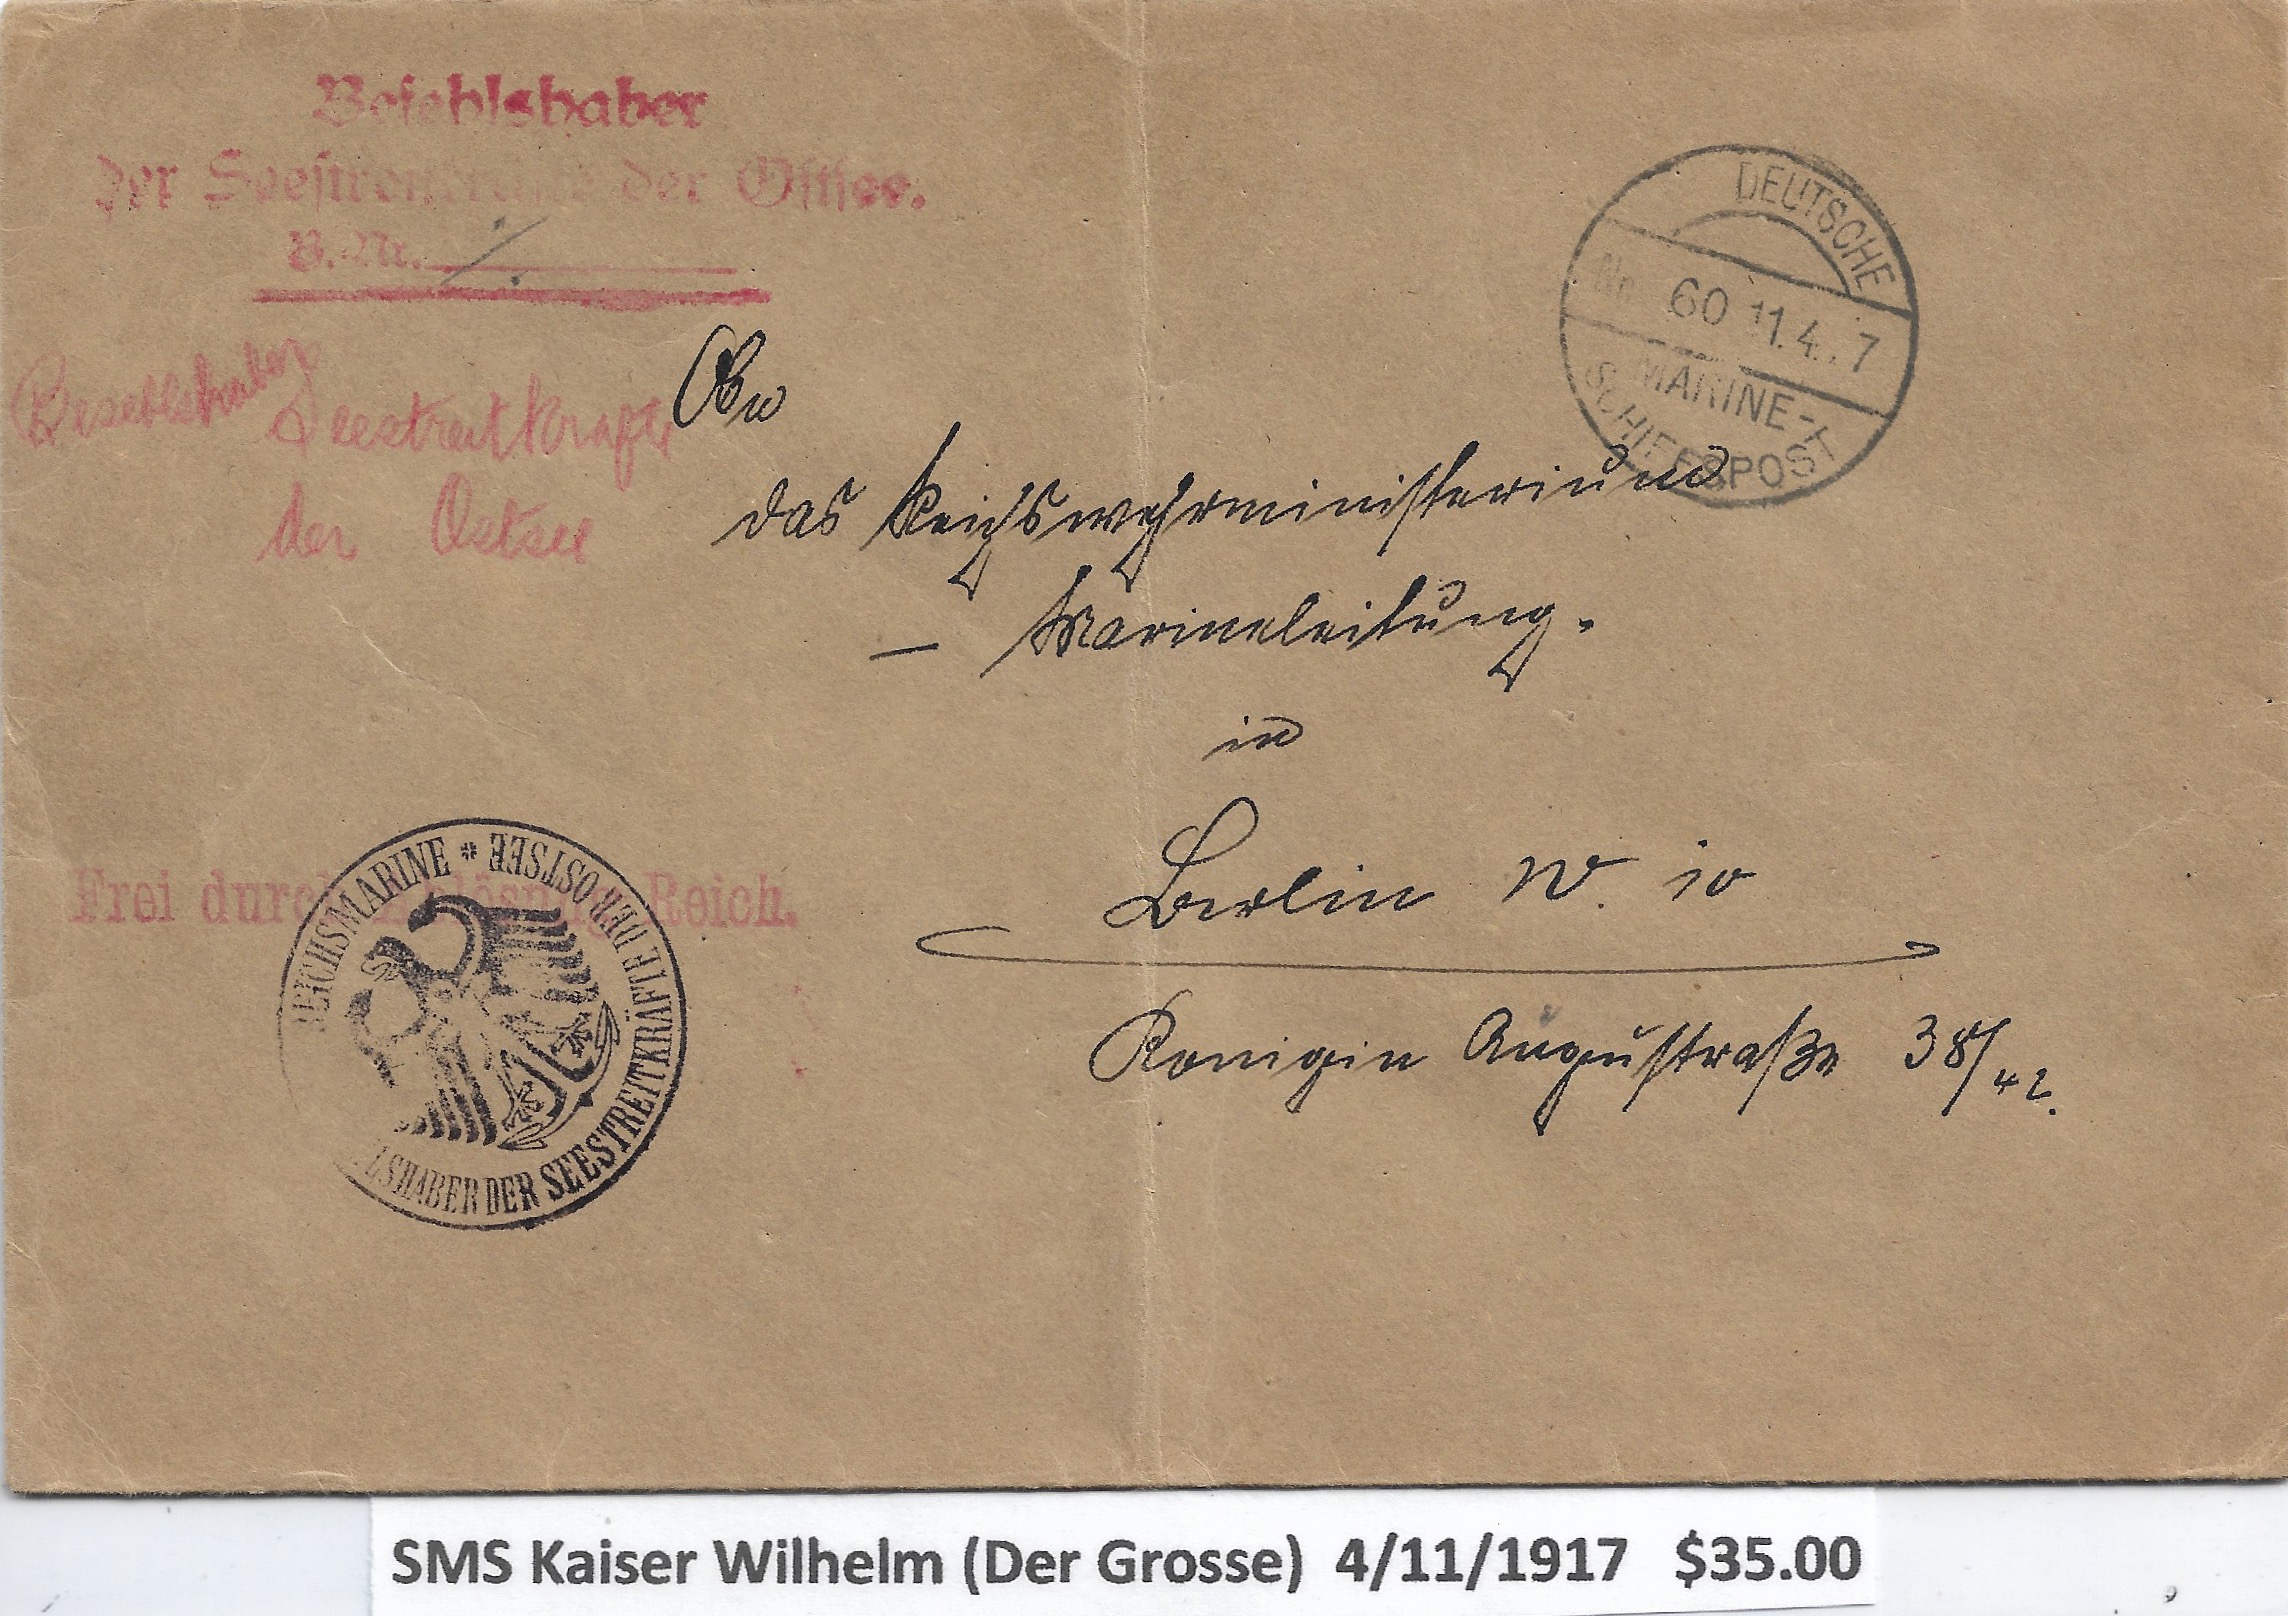 Befehlshaber
der Seestreitkräfte der Ostsee.
B.-Nr. ./.
Besehlshaber
Seestreitkräfte
der Ostsee
DEUTSCHE
Nr. 60 11.4. 7
MARINE-
SCHIFFSPOST
An
das Reichswehrministerium
– Marineleitung.
in
Berlin W. 10
Königin Augustastraße 38/42.
Frei durch Ablösung Reich.
REICHSMARINE * LSHABER DER SEESTREITKRÄFTE DER OSTSEE
SMS Kaiser Wilhelm (Der Grosse) 4/11/1917 $35.00